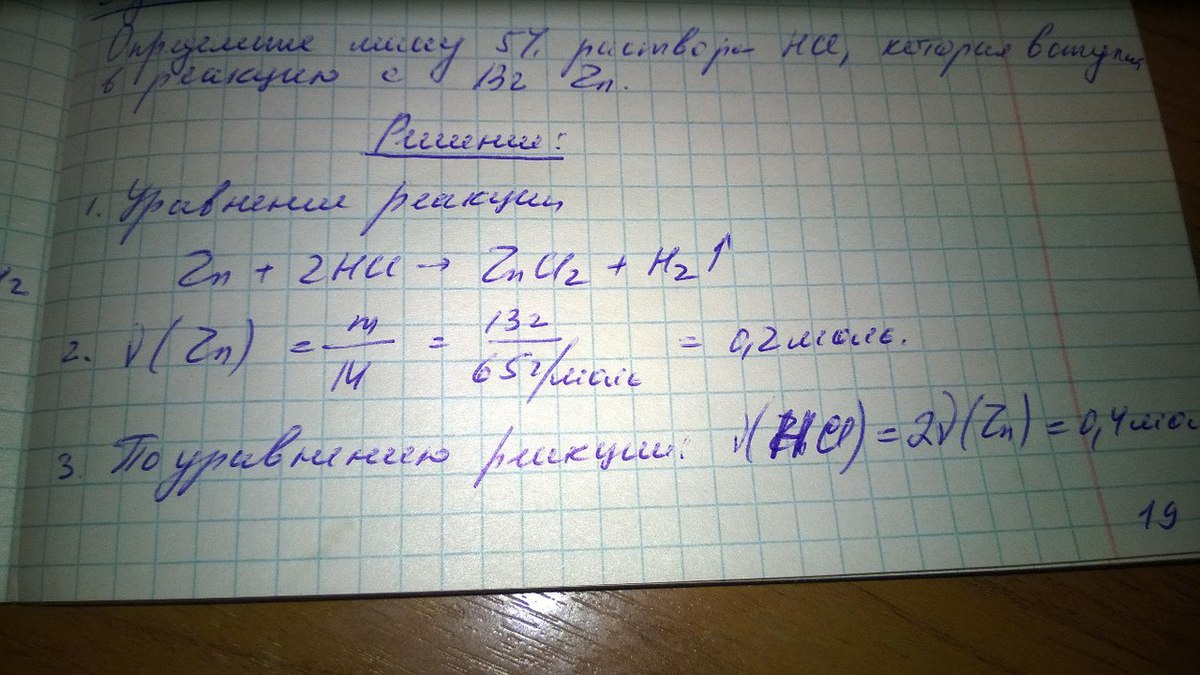 Определите массу 5% раствора HCl, которая вступил
в реакцию с 13г Zn.
Решение:
1. Уравнение реакции
Zn + 2HCl → ZnCl₂ + H₂↑
2. ν(Zn) = m/M = 13г/65г/моль = 0,2 моль.
3. По уравнению реакции: ν(HCl) = 2ν(Zn) = 0,4 мол
19